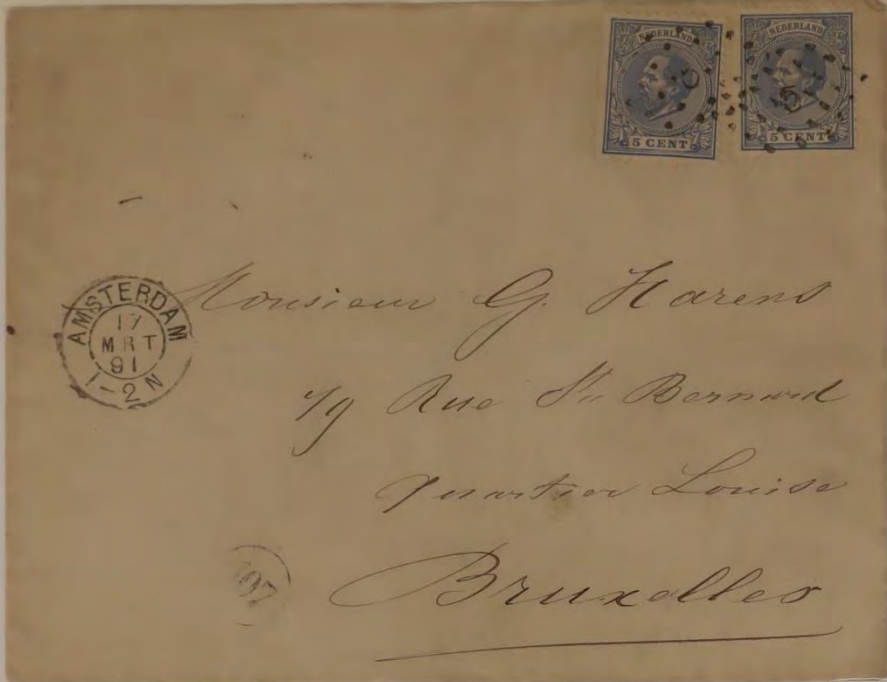 NEDERLAND NEDERLAND
5 5
5 CENT 5 CENT
AMSTERDAM
17
MRT
91
1-2N
Monsieur G. Harens
Rue St. Bernard
Quartier Louise
107
Bruxelles